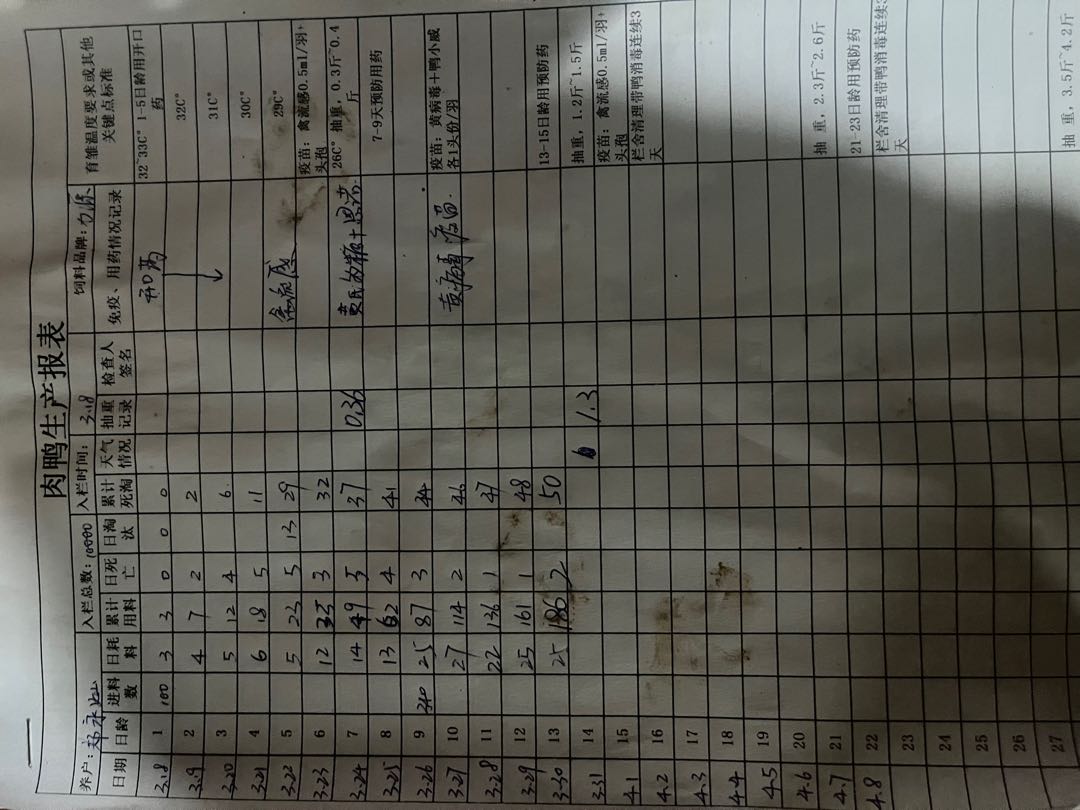 肉鸭生产报表
养户: 郑永 入栏总数: 10000 入栏时间: 3.18 饲料品牌:
日期 日龄 进料数 日耗料 累计用料 日死亡 日淘汰 累计死淘 天气情况 抽重记录 检查人签名 免疫、用药情况记录 育雏温度要求或其他关键点标准
3.18 1 100 3 3 0 0 0 开口药 32~33C° 1-5日龄用开口药
3.19 2 4 7 2 2 32C°
3.20 3 5 12 4 6 31C°
3.21 4 6 18 5 11 30C°
3.22 5 5 23 5 13 29 禽流感 29C°
3.23 6 12 35 3 32 疫苗: 禽流感0.5ml/羽+头孢
3.24 7 14 49 5 37 0.36 26C° 抽重, 0.3斤~0.4斤
3.25 8 13 62 4 41 7-9天预防用药
3.26 9 240 25 87 3 44
3.27 10 27 114 2 46 黄病毒疫苗. 疫苗: 黄病毒+鸭小威各1头份/羽
3.28 11 22 136 1 47
3.29 12 25 161 1 48
3.30 13 25 186 2 50 13-15日龄用预防药
3.31 14 1.3 抽重, 1.2斤~1.5斤
4.1 15 疫苗: 禽流感0.5ml/羽+头孢
4.2 16 栏舍清理带鸭消毒连续3天
4.3 17
4.4 18
4.5 19
4.6 20
4.7 21 抽 重, 2.3斤~2.6斤
4.8 22 21-23日龄用预防药
23 栏舍清理带鸭消毒连续3天
24
25
26
27 抽 重, 3.5斤~4.2斤